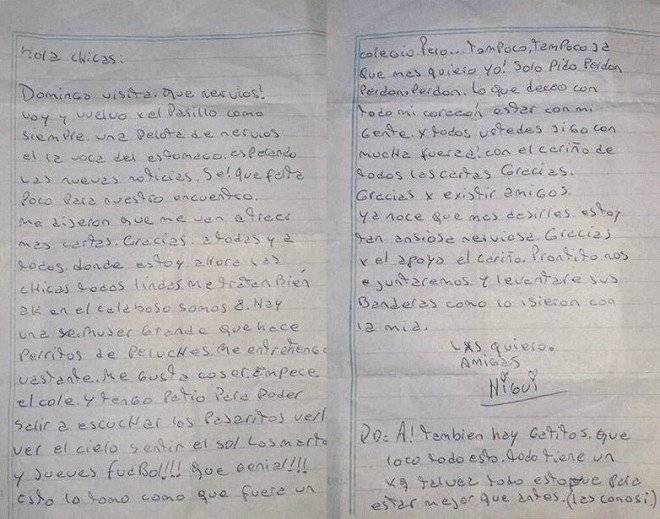 hola chicas:
Domingo visita. Que nervios!
Voy y vuelvo xel Pasillo como
siempre. una Pelota de nervios
el la voca del estomago. espelando
Las nuevas noticias. Se! que falta
Poco Para nuestro encuentro.
me diseron que me van a traer
mas cartas. Gracias. a todas y a
todos. donde estoy ahora Las
chicas todas lindas. me tratan Bien
ak en el calaboso somos 8. Hay
una se. muser Grande que hace
Perritos de PeluCHes. Me entretengo
vastante. Me Gusta coser. Empece
el cole. y tengo Patio Para Poder
Salir a escuchar los Pasaritos ver
ver el cielo sentir el sol Los marte
y Jueves fudBol!!! que Genial!!!
esto lo tomo como que fuera un
colegio. Pero... tamPoco, tamPoco sa
Que mas quiero yo! Solo Pido Perdon
Perdon. Perdon. Lo que deceo con
todo mi coreson estar con mi
Gente. x todos ustedes sigo con
mucha fuerza! con el cariño de
todos las cartas Gracias.
Gracias x existir amigos.
Ya noce que mas desirles. estoy
tan ansiosa nerviosa. Gracias
x el apoyo el cariño. Prontito nos
ejuntaremos. y levantare sus
Banderas como lo isieron con
la mia.
LAS quiero.
AmigAS
Higui
PD: A! tambien hay Gatitos. Que
loco todo esto. todo tiene un
xq talvez todo esto fue Para
estar mejor que antes. (las conosi)